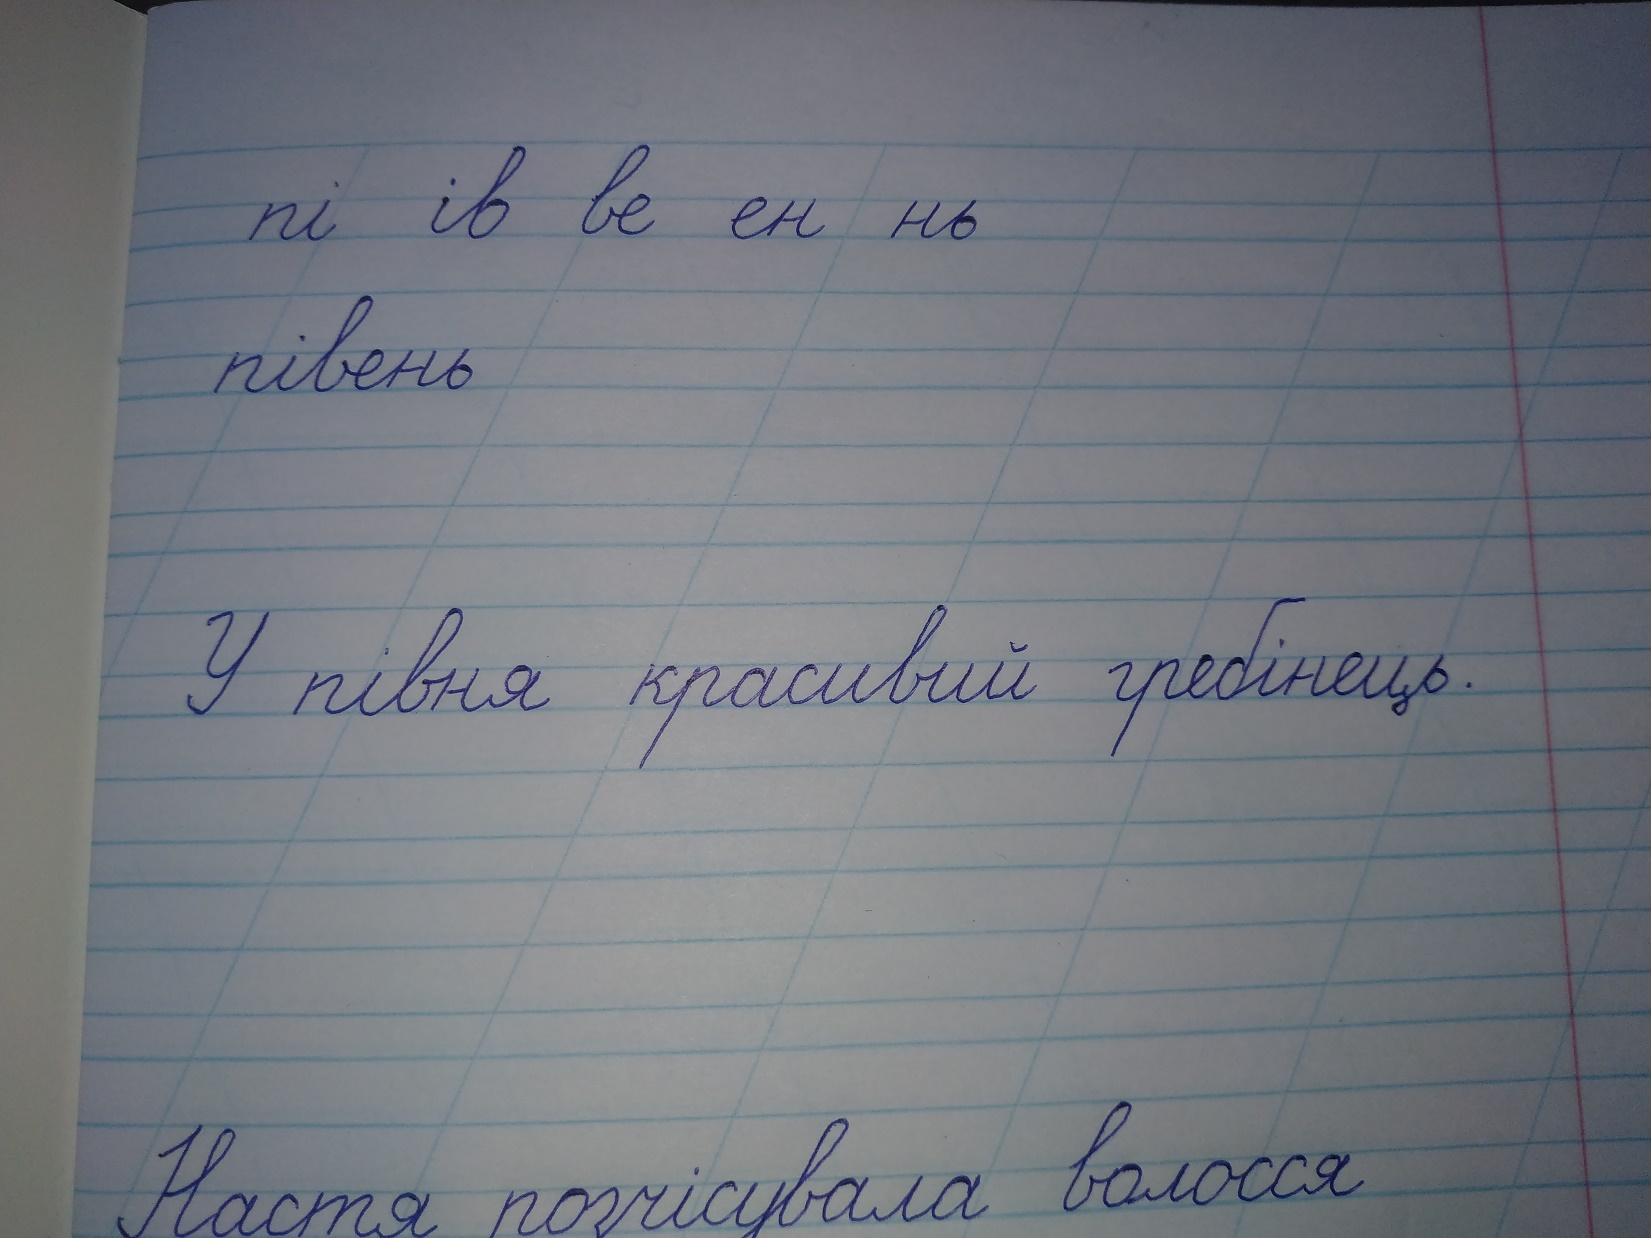 пі ів ве ен нь
півень
У півня красивий гребінець.
Настя позчісувала волосся